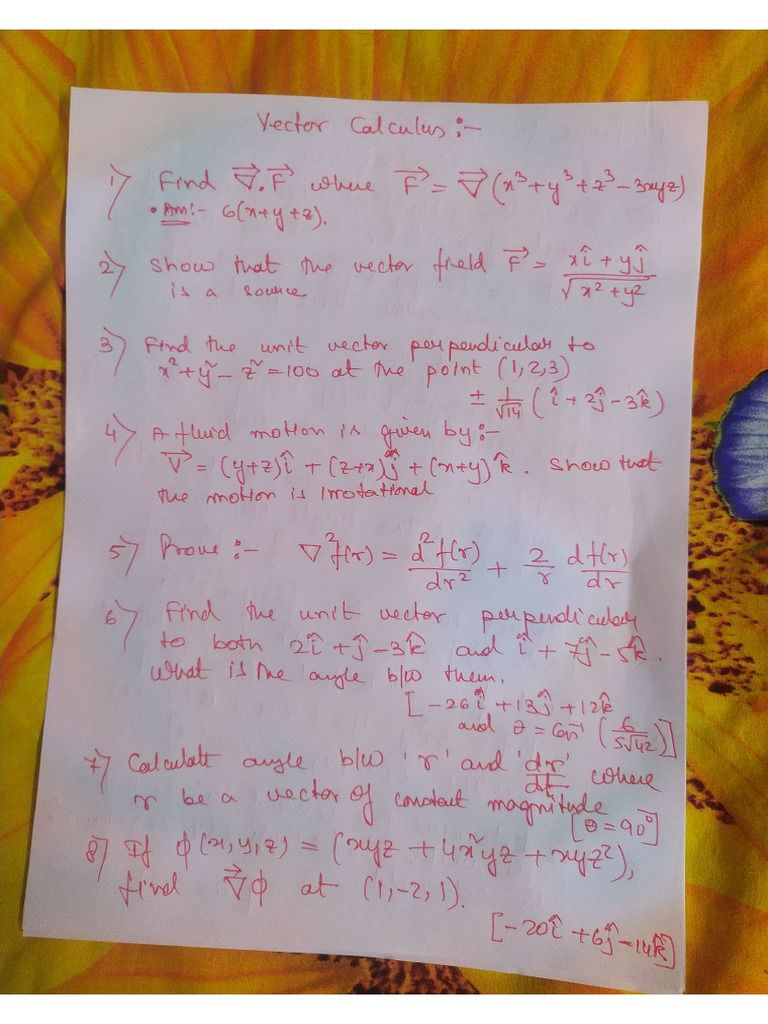 Vector Calculus :-
1) Find ∇⃗.F⃗ where F⃗ = ∇⃗(x³+y³+z³-3xyz)
• Ans:- 6(x+y+z).
2) Show that the vector field F⃗ = (xî + yĵ)/√(x²+y²)
is a source
3) Find the unit vector perpendicular to
x²+y²-z²=100 at the point (1,2,3)
± 1/√14 (î + 2ĵ - 3k̂)
4) A fluid motion is given by:-
V⃗ = (y+z)î + (z+x)ĵ + (x+y)k̂. Show that
the motion is irrotational
5) Prove :- ∇²f(r) = d²f(r)/dr² + 2/r df(r)/dr
6) Find the unit vector perpendicular
to both 2î + ĵ - 3k̂ and î + 7ĵ - 5k̂.
What is the angle b/w them.
[-26î + 13ĵ + 12k̂
and θ = Cos⁻¹ (6/5√42)]
7) Calculate angle b/w 'r' and 'dr/dt' where
r be a vector of constant magnitude
[θ = 90°]
8) If ϕ(x,y,z) = (xyz + 4x²yz + xyz²),
find ∇⃗ϕ at (1,-2,1).
[-20î + 6ĵ - 14k̂]